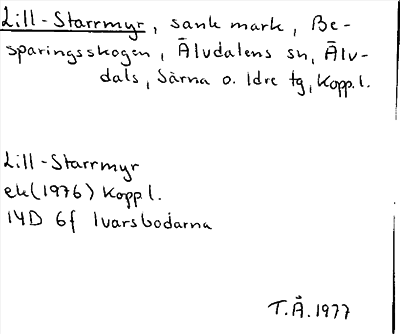 Lill-Starrmyr, sank mark, Be-
sparingsskogen, Älvdalens sn, Älv-
dals, Särna o. Idre tg, Kopp.l.
Lill-Starrmyr
ek(1976) Kopp l.
14D 6f Ivarsbodarna
T.Å.1977